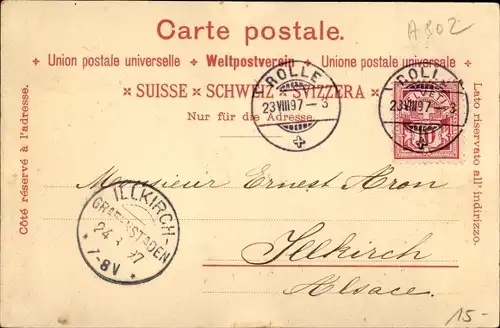 A802
Carte postale.
Union postale universelle + Weltpostverein + Unione postale universale
SUISSE × SCHWEIZ × SVIZZERA
Nur für die Adresse.
Côté réservé à l'adresse.
Lato riservato all' indirizzo.
ROLLE
23 VIII 97 - 3
ROLLE
23 VIII 97 - 3
HELVETIA
10
Monsieur Ernest Aron
Illkirch
Alsace.
ILLKIRCH-
GRAFENSTADEN
24 97
7-8V
15-